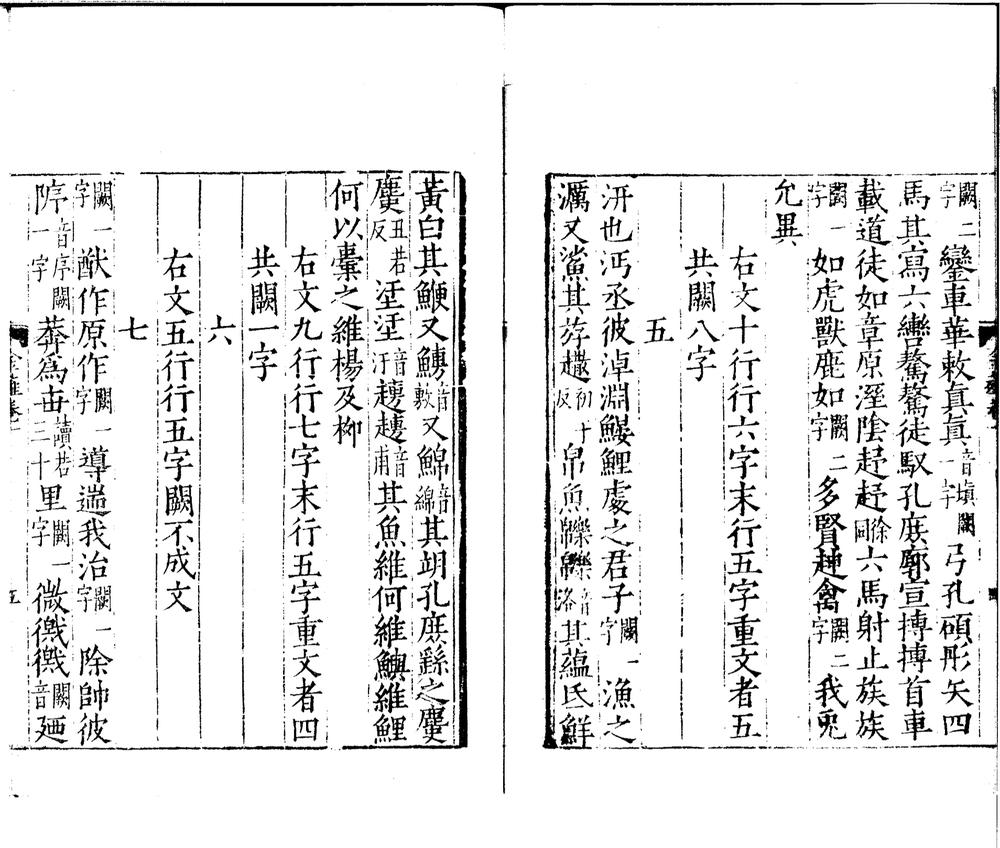 闕二字鑾車華敕真真音塡闕一字弓孔碩彤矢四
馬其寫六轡驁驁徒馭孔庶廓宣搏搏首車
載道徒如章原溼陰趍趍徐同六馬射止族族
闕一字如虎獸鹿如闕二字多賢禽闕二字我兎
允異
右文十行行六字末行五字重文者五
共闕八字
五
汧也沔丞彼淖淵鰋鯉處之君子闕一字漁之
澫又鯊其斿趣初十反帛魚皪皪音洛其蘊氐鮮
黃白其鯾又鱄音敷又鯞音綿其胡孔庶䜌之麌
麌丑若反汗汗趍趍音甫其魚維何維鱮維鯉
何以橐之維楊及柳
右文九行行七字末行五字重文者四
共闕一字
六
右文五行行五字闕不成文
七
闕一字猷作原作闕一字導遄我治闕一字除帥彼
阼音序闕一字莽為丗讀若三十里闕一字微徶徶闕音廼
五